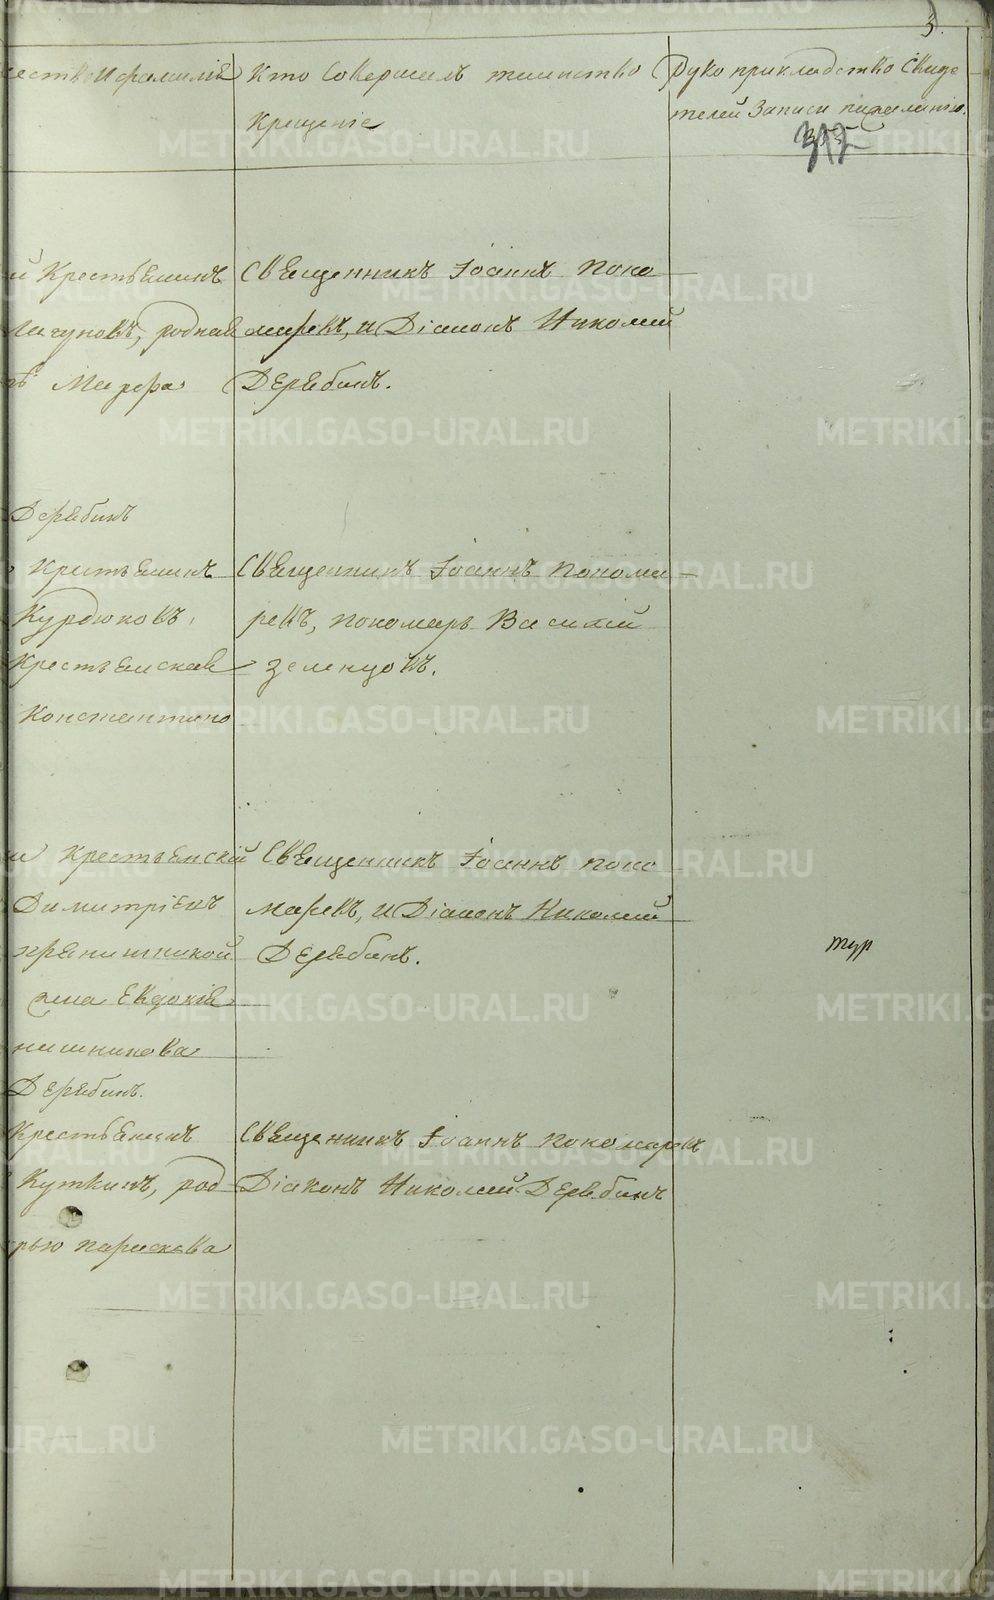 3.
Кто Совершалъ таинство
Крещеніе
Рукоприкладство Свиде
телей Записи по желанію.
и Крестьянинъ
Лагуновъ, родная
Марфа
Священникъ Іоаннъ Поно
маревъ, и Діаконъ Николай
Дерябинъ.
Дерябинъ
Крестьянинъ
Курдюковъ,
Крестьянская
Константино
Священникъ Іоаннъ Понома-
ревъ, пономарь Василій
Зеленцовъ.
Крестьянскій
Димитріевъ
Евдокія
нишникова
Дерябинъ.
Священникъ Іоаннъ Поно
маревъ, и Діаконъ Николай
Дерябинъ.
тур
Крестьянинъ
Куткинъ, род
рью Парасковa
Священникъ Іоаннъ Пономаревъ
Діаконъ Николай Дерябинъ
METRIKI.GASO-URAL.RU